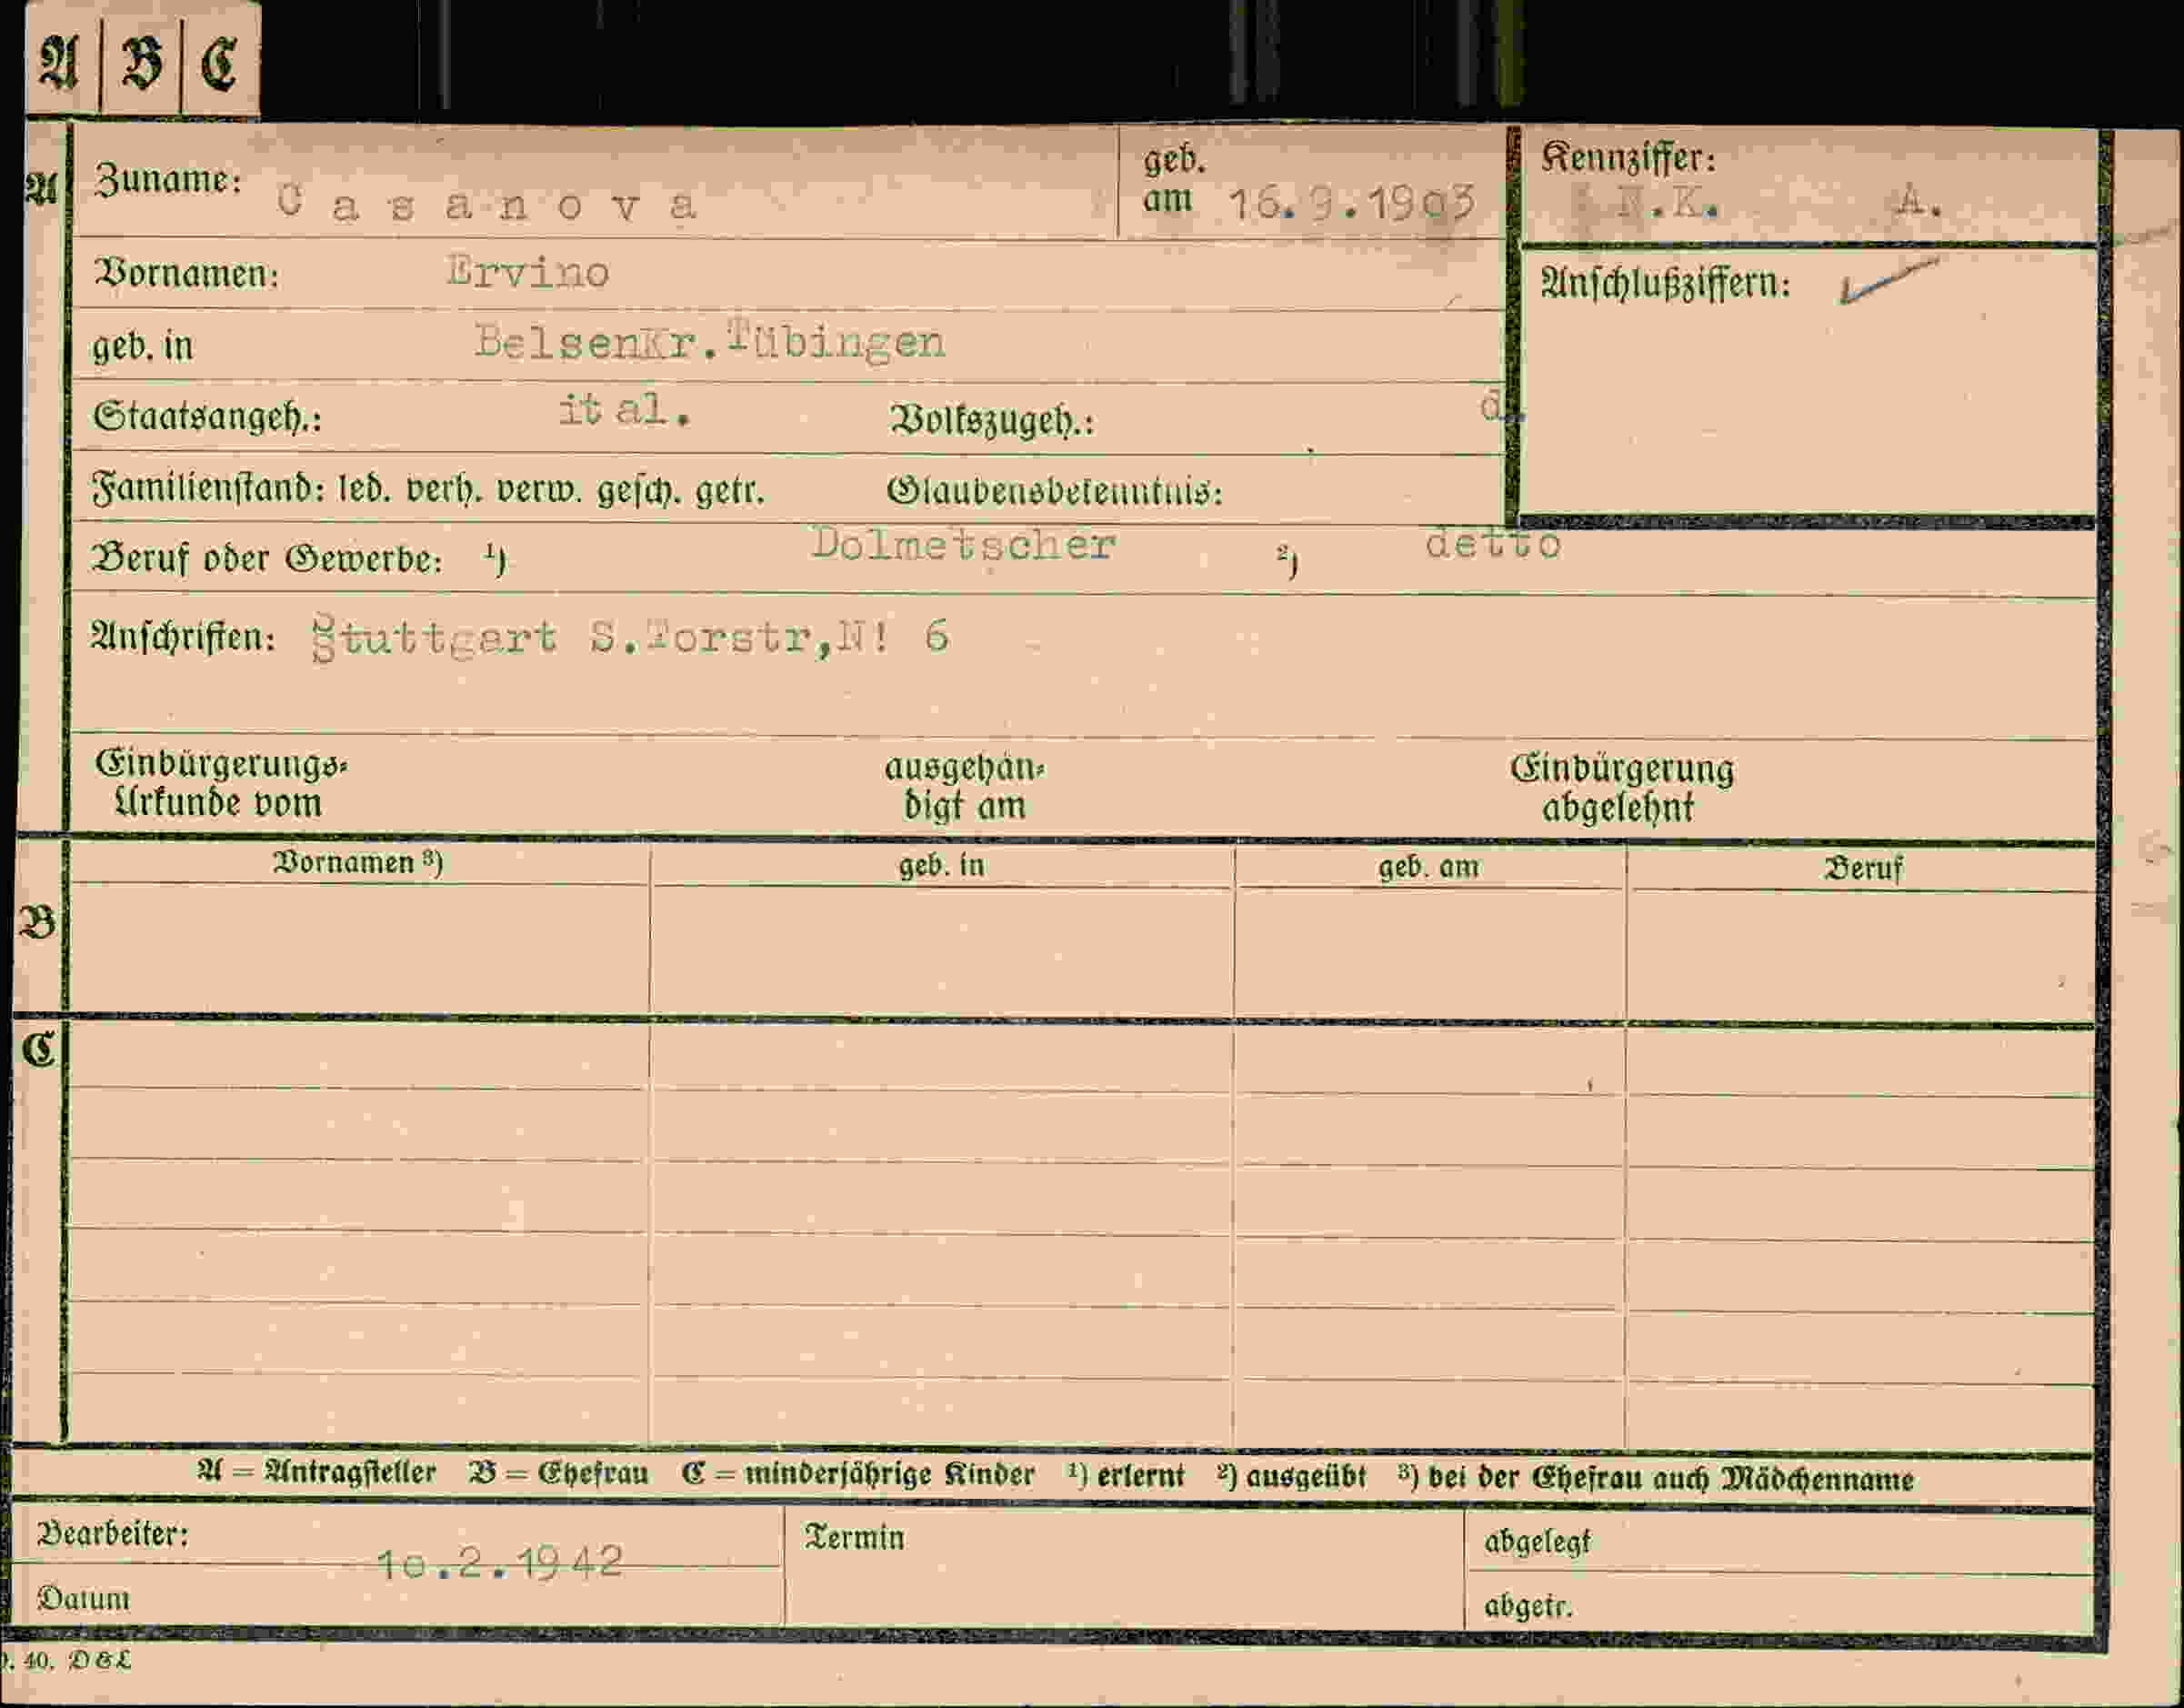 A B C
A Zuname: Casanova geb. am 16.9.1903 Kennziffer: N.K. A.
Vornamen: Ervino Anschlußziffern:
geb. in BelsenKr.Tübingen
Staatsangeh.: ital. Volkszugeh.: d.
Familienstand: led. verh. verw. gesch. getr. Glaubensbekenntnis:
Beruf oder Gewerbe: ¹) Dolmetscher ²) detto
Anschriften: Stuttgart S.Torstr,N! 6
Einbürgerungs= ausgehän= Einbürgerung
Urkunde vom digt am abgelehnt
Vornamen ³) geb. in geb. am Beruf
B
C
A = Antragsteller B = Ehefrau C = minderjährige Kinder ¹) erlernt ²) ausgeübt ³) bei der Ehefrau auch Mädchenname
Bearbeiter: Termin abgelegt
10.2.1942
Datum abgetr.
40. D&L